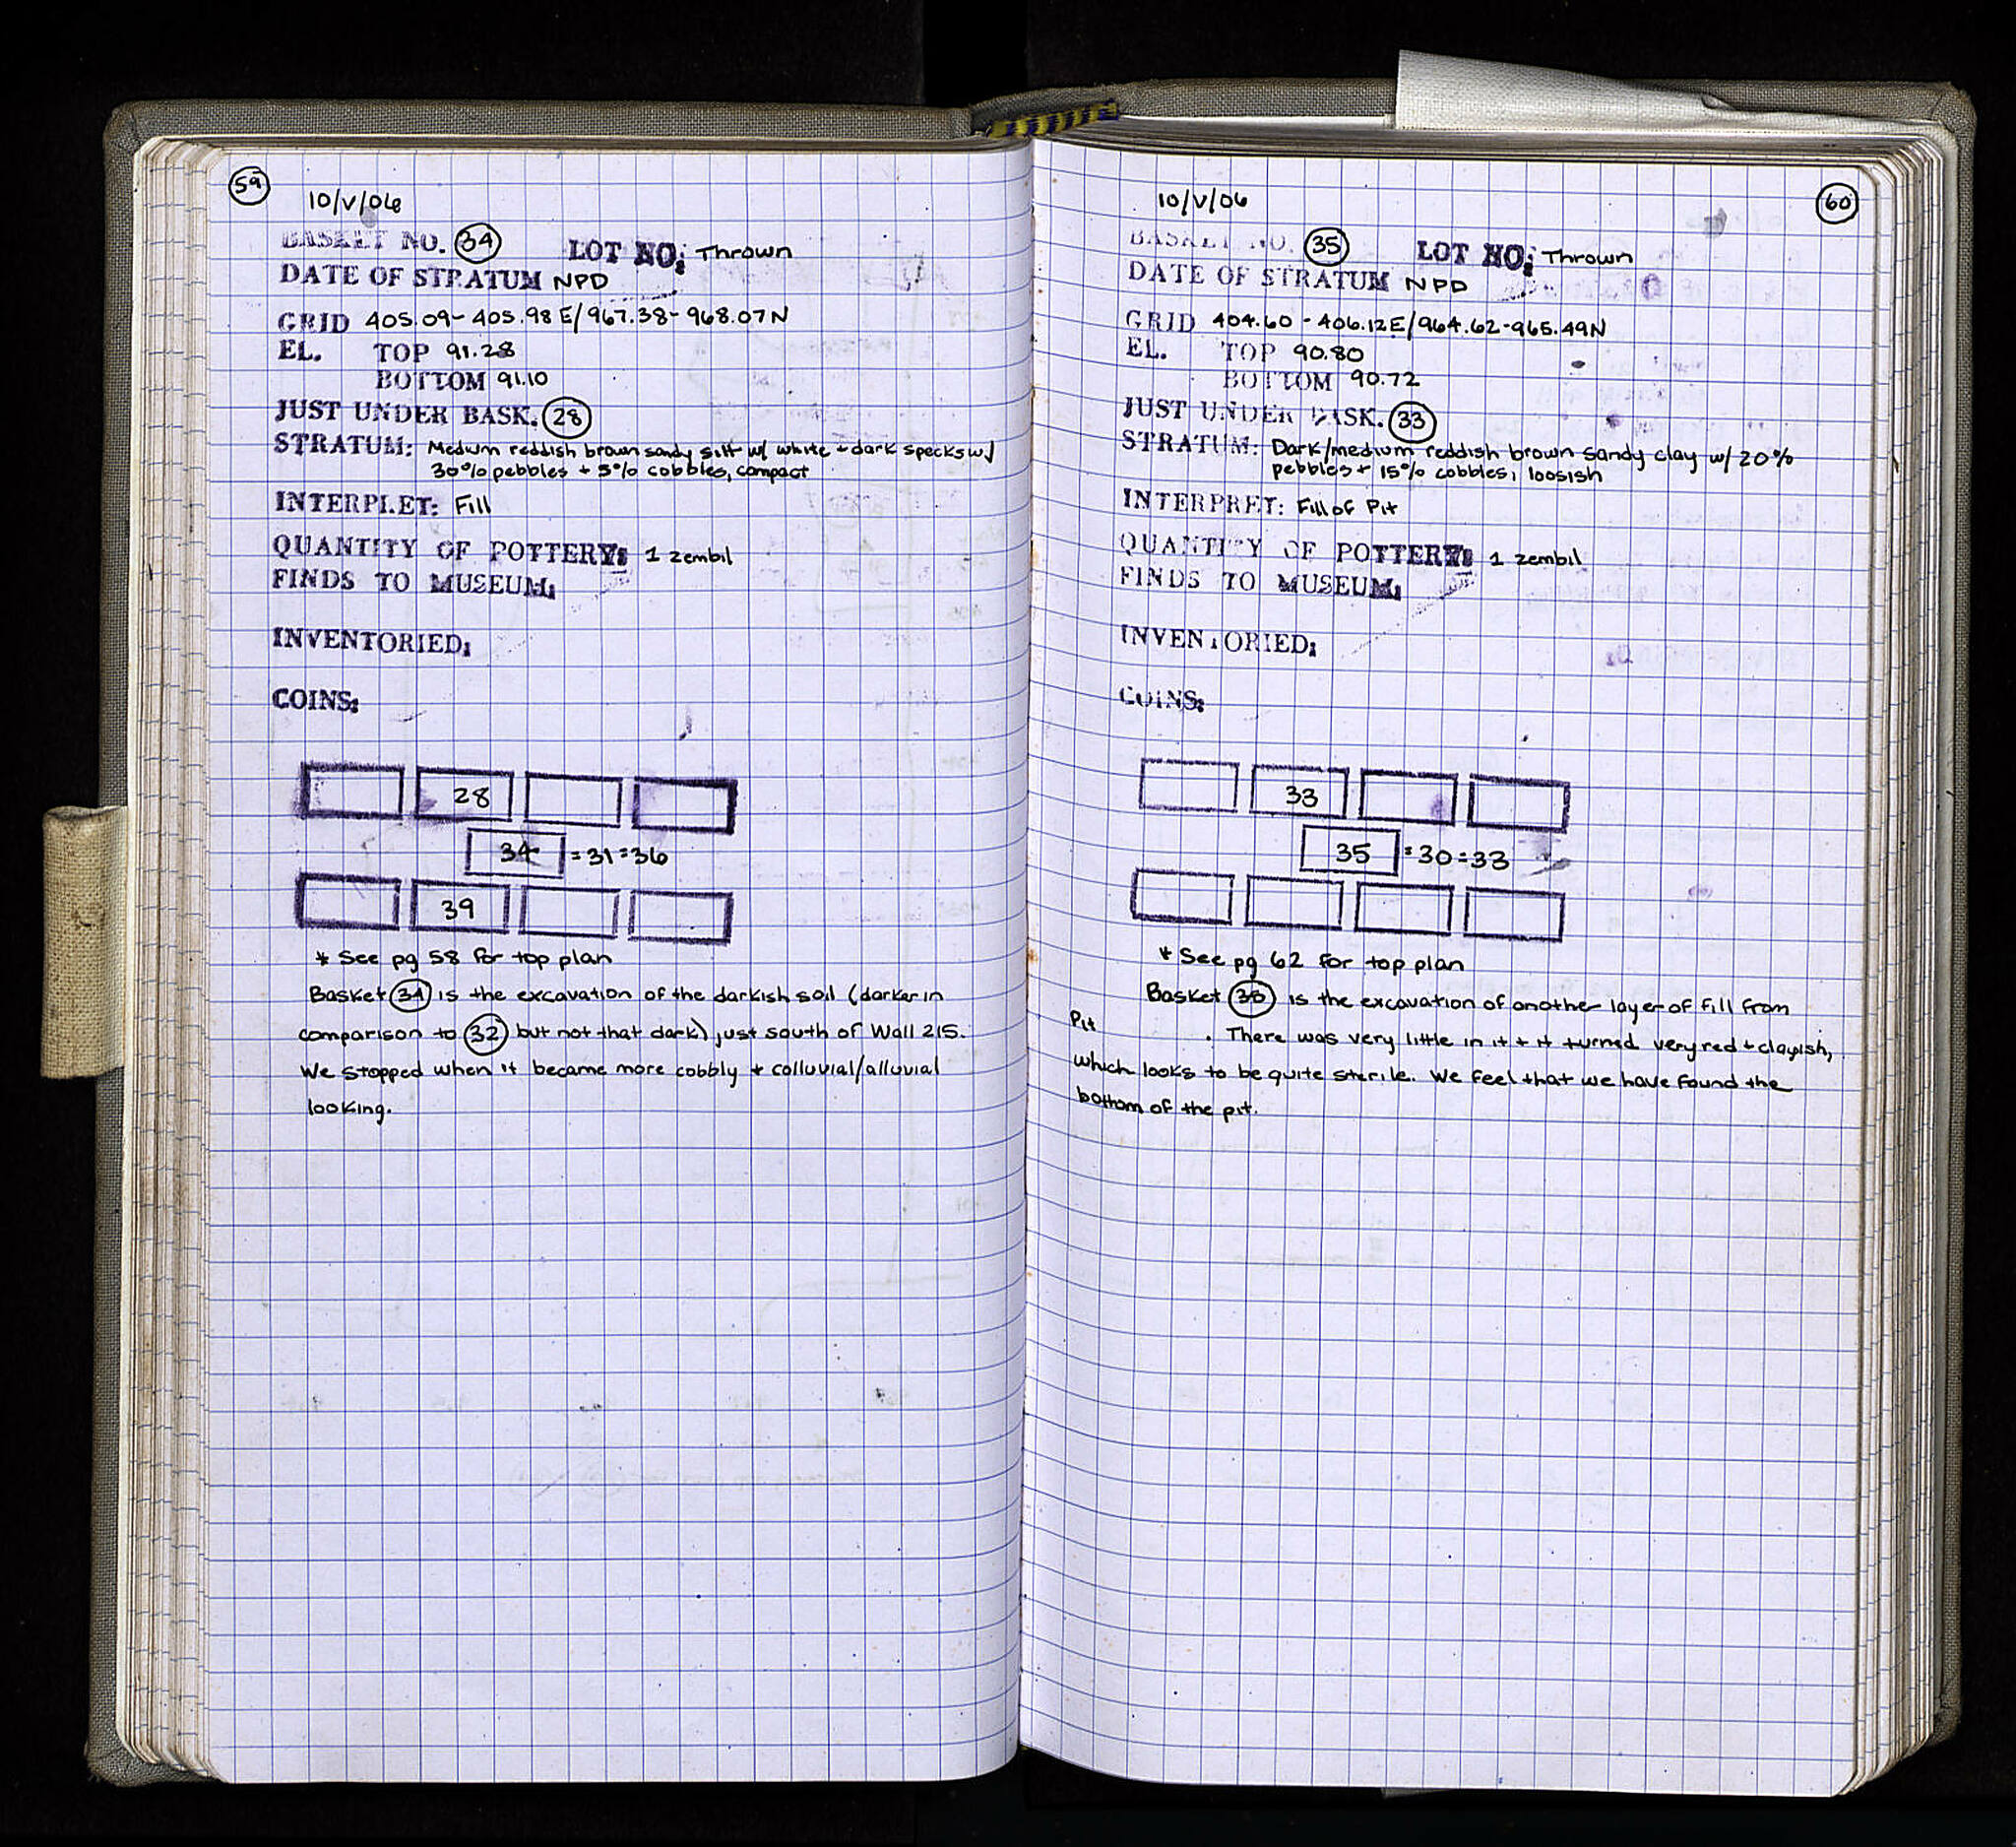 59
10/V/06
BASKET NO. 34 LOT NO: Thrown
DATE OF STRATUM NPD
GRID 405.09-405.98 E/967.38-968.07N
EL. TOP 91.28
BOTTOM 91.10
JUST UNDER BASK. 28
STRATUM: Medium reddish brown sandy silt w/ white + dark specks w/
30% pebbles + 5% cobbles, compact
INTERPRET: Fill
QUANTITY OF POTTERY: 1 zembil
FINDS TO MUSEUM:
INVENTORIED:
COINS:
28
34 =31=36
39
* See pg 58 for top plan
Basket 34 is the excavation of the darkish soil (darker in
comparison to 32 but not that dark) just south of Wall 215.
We stopped when it became more cobbly + colluvial/alluvial
looking.
60
10/V/06
BASKET NO. 35 LOT NO: Thrown
DATE OF STRATUM NPD
GRID 404.60-406.12E/964.62-965.49N
EL. TOP 90.80
BOTTOM 90.72
JUST UNDER BASK. 33
STRATUM: Dark/medium reddish brown sandy clay w/ 20%
pebbles + 15% cobbles, loosish
INTERPRET: Fill of Pit
QUANTITY OF POTTERY: 1 zembil
FINDS TO MUSEUM:
INVENTORIED:
COINS:
33
35 =30=33
* See pg 62 for top plan
Basket 35 is the excavation of another layer of fill from
Pit . There was very little in it + it turned very red + clayish,
which looks to be quite sterile. We feel that we have found the
bottom of the pit.